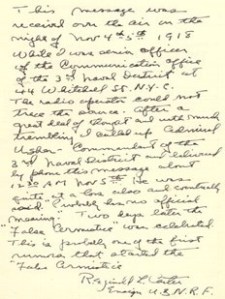 This message was
received over the air on the
night of Nov 4th 5th 1918
While I was senior officer
of the Communication Office
of the 3rd Naval District at
44 Whitehall St. N.Y.C.
The radio operator could not
trace the source. After a
great deal of and with much
trembling I called up Admiral
Usher - Commandant of the
3rd Naval District and delivered
by phone this message about
12:30 AM Nov 5th He was
quite at a loss also and
said " has no official
meaning". Two days later the
"False Armistice" was celebrated.
This is probably one of the first
rumors that started the
"False Armistice
Reginald L.
Ensign U.S.N.R.F.